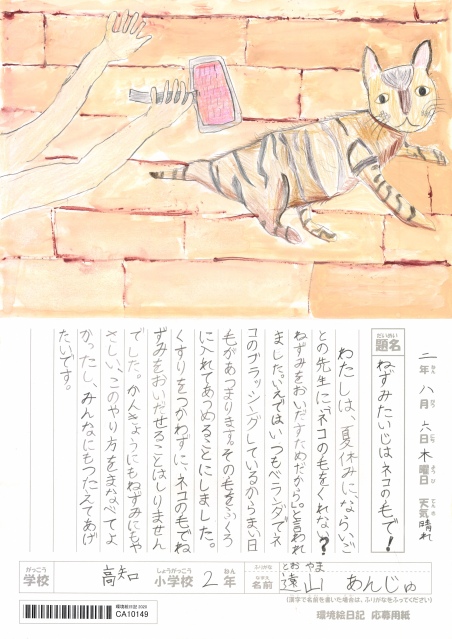 二年 八月 六日 木曜日 天気 晴れ
題名 ねずみたいじはネコの毛で!
わたしは、夏休みに、ならいご
との先生に「ネコの毛をくれない?
ねずみをおいだすためだから。」と言われ
ました。いえではいつもベランダでネ
コのブラッシングしているからまい日
毛があつまります。その毛をふくろ
に入れてあつめることにしました。
くすりをつかわずに、ネコの毛でね
ずみをおいだせることはしりません
でした。かんきょうにもねずみにもや
さしい、このやり方をまなべてよ
かったし、みんなにもつたえてあげ
たいです。
がっこう
学校
高知
しょうがっこう
小学校
2
ねん
年
ふりがな
とおやま
なまえ
名前
遠山 あんじゅ
(漢字で名前を書いた場合は、ふりがなをふってください)
環境絵日記 2020
CA10149
環境絵日記 応募用紙